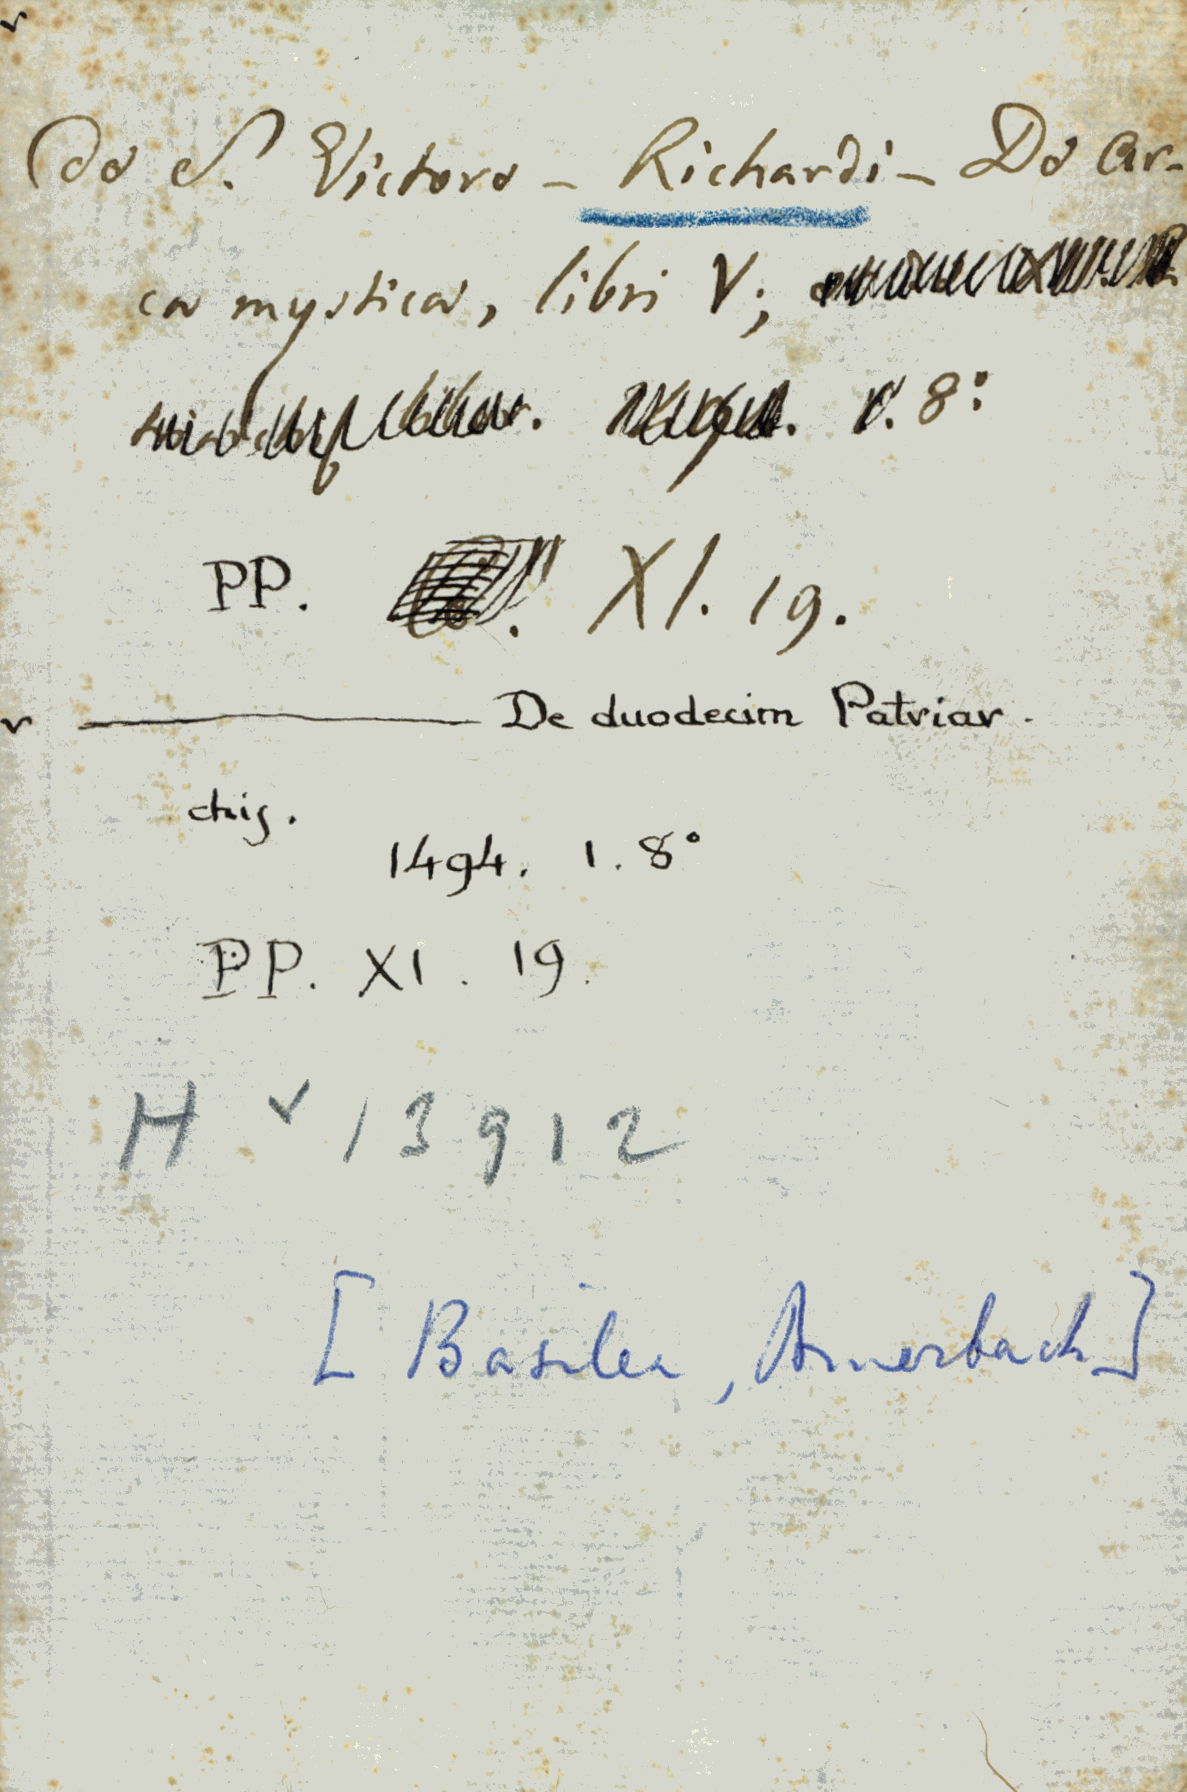 De S. Victore - Richardi - De ar-
ca mystica, libri V;
8°
PP. XI. 19.
De duodecim Patriar-
chis.
1494. 1. 8°
PP. XI. 19.
H 13912
[Basilea, Amerbach]